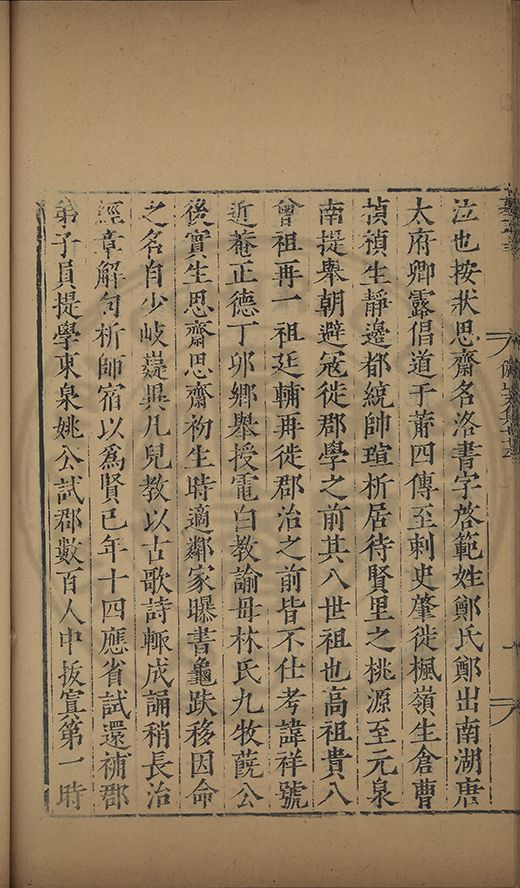 泣也按狀思齋名洛書字啓範姓鄭氏鄭出南湖唐
太府卿露倡道于莆四傳至刺史肇徙楓嶺生倉曹
禎禎生靜邊都統帥瑄析居待賢里之桃源至元泉
南提舉朝避冦徙郡學之前其八世祖也高祖貴八
曾祖再一祖廷輔再徙郡治之前皆不仕考諱祥號
近菴正德丁卯鄉舉授電白教諭毋林氏九牧蓻公
後實生思齋思齋初生時適鄰家曝書龜趺移因命
之名自少岐嶷異凡兒教以古歌詩輙成誦稍長治
經章解句析師宿以爲賢已年十四應省試還補郡
弟子員提學東泉姚公試郡數百人中拔寘第一時